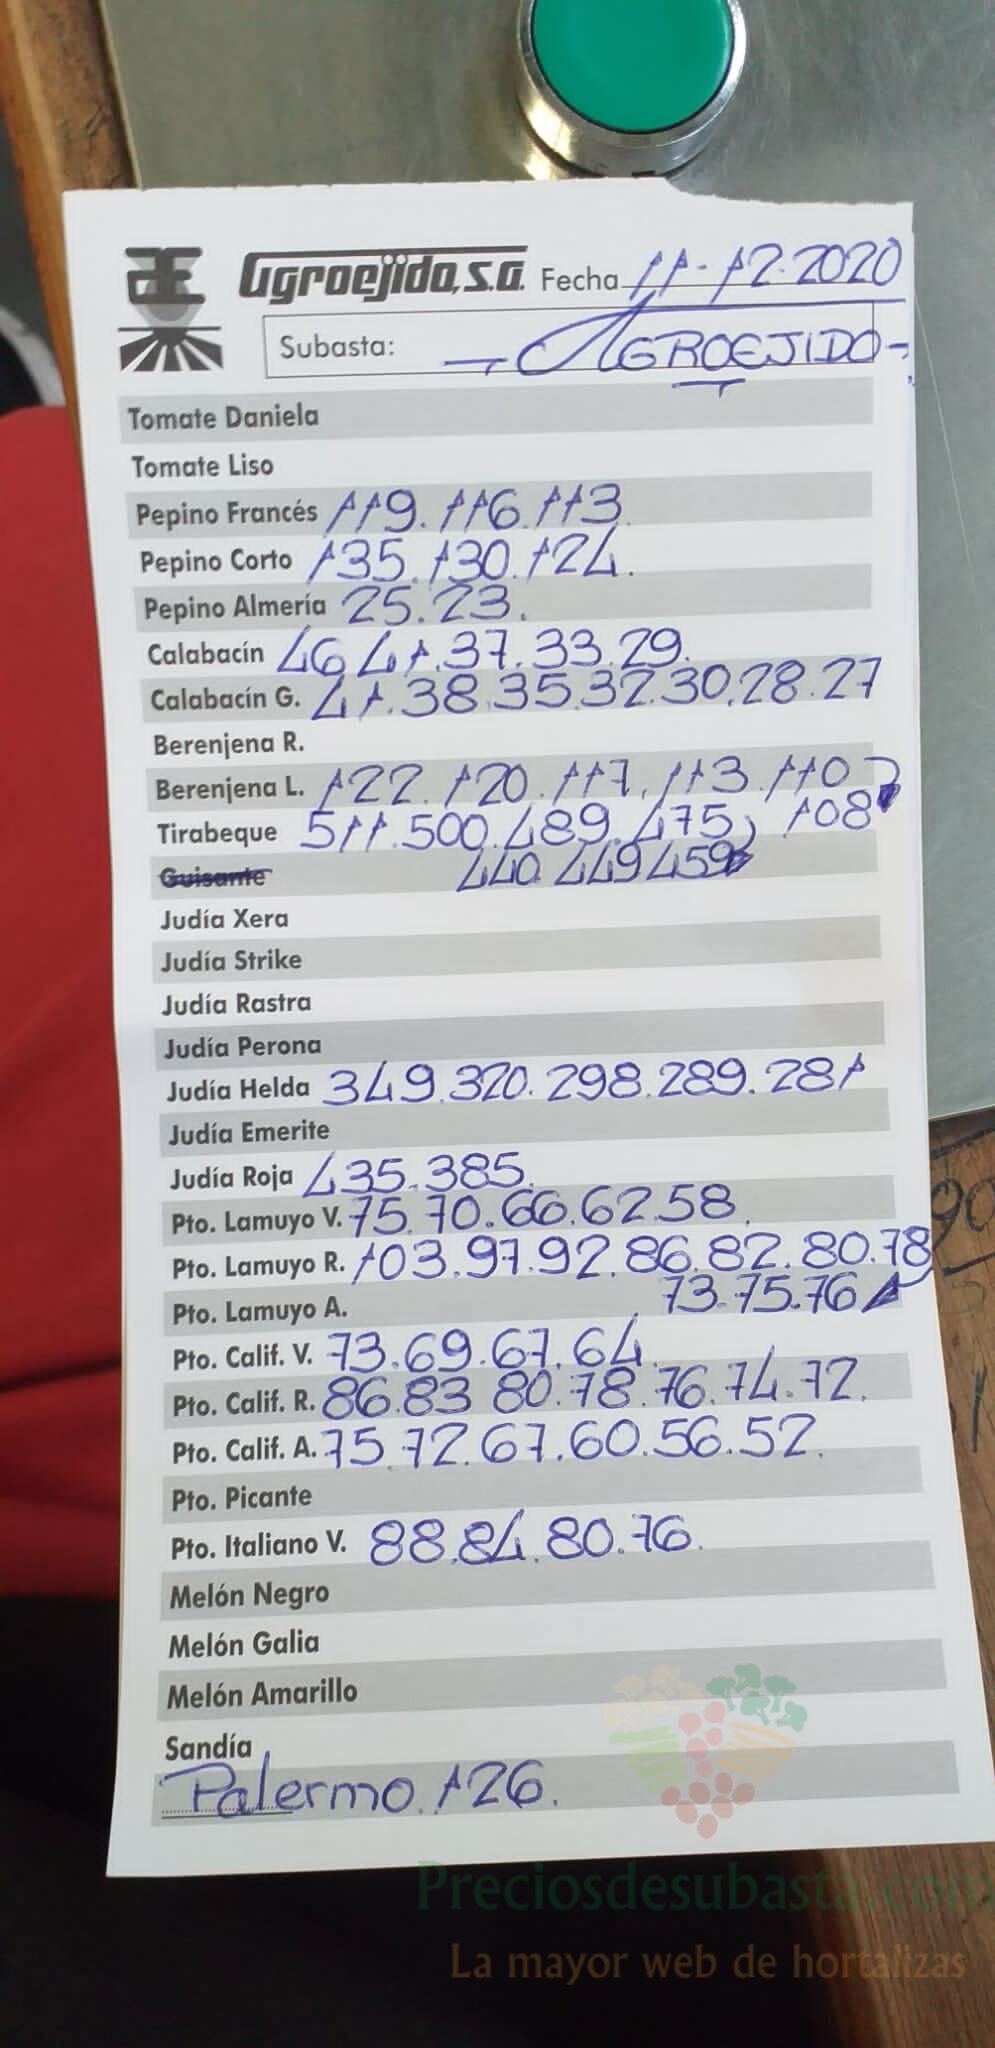 Agroejido, S.A. Fecha 11-12-2020
Subasta: - AGROEJIDO -
Tomate Daniela
Tomate Liso
Pepino Francés 119. 116. 113
Pepino Corto 135. 130. 124.
Pepino Almería 25. 23.
Calabacín 46 41. 37. 33. 29.
Calabacín G. 41. 38 35. 32. 30. 28. 27
Berenjena R.
Berenjena L. 122. 120. 117. 113. 110
108
Tirabeque 511. 500. 489. 475
Guisante 440. 449 459
Judía Xera
Judía Strike
Judía Rastra
Judía Perona
Judía Helda 349. 320. 298. 289. 281
Judía Emerite
Judía Roja 435. 385.
Pto. Lamuyo V. 75. 70. 66. 62. 58.
Pto. Lamuyo R. 103. 97. 92. 86. 82. 80. 78
Pto. Lamuyo A. 73. 75. 76
Pto. Calif. V. 73. 69. 67. 64.
Pto. Calif. R. 86. 83 80. 78. 76. 74. 72.
Pto. Calif. A. 75. 72. 67. 60. 56. 52.
Pto. Picante
Pto. Italiano V. 88. 84. 80. 76.
Melón Negro
Melón Galia
Melón Amarillo
Sandía
Palermo. 126.
Preciosdesubasta.com
La mayor web de hortalizas